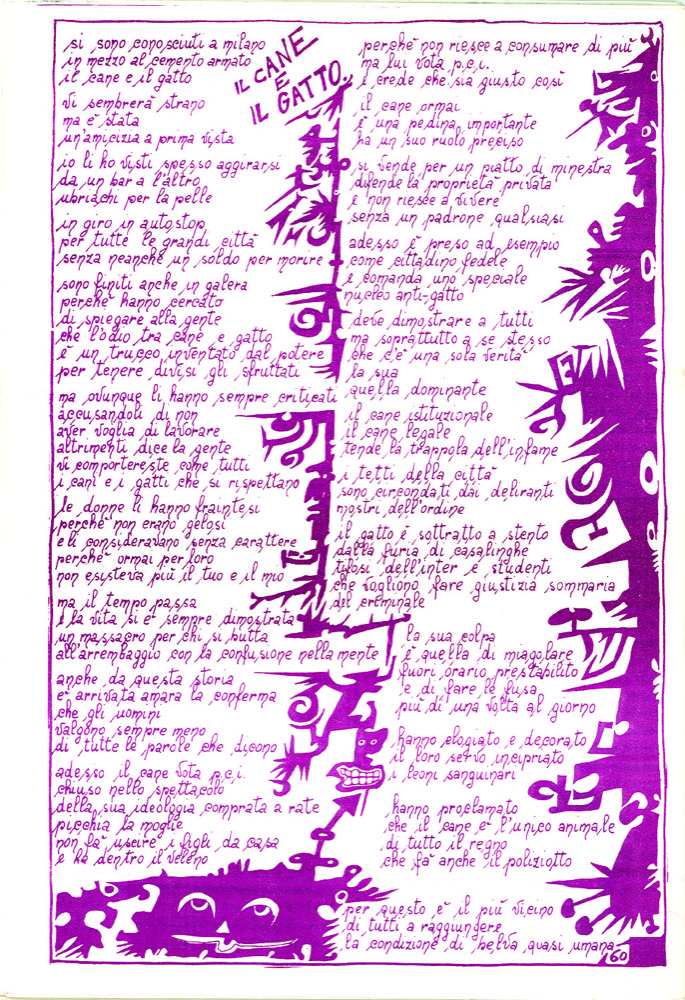 IL CANE
E
IL GATTO.
si sono conosciuti a milano
in mezzo al cemento armato
il cane e il gatto
vi sembrerà strano
ma è stata
un'amicizia a prima vista
io li ho visti spesso aggirarsi
da un bar a l'altro
ubriachi per la pelle
in giro in autostop
per tutte le grandi città
senza neanche un soldo per morire
sono finiti anche in galera
perchè hanno cercato
di spiegare alla gente
che l'odio tra cane e gatto
è un trucco inventato dal potere
per tenere divisi gli sfruttati
ma ovunque li hanno sempre criticati
accusandoli di non
aver voglia di lavorare
altrimenti dice la gente
vi comportereste come tutti
i cani e i gatti che si rispettano
le donne li hanno fraintesi
perchè non erano gelosi
e li consideravano senza carattere
perchè ormai per loro
non esisteva più il tuo e il mio
ma il tempo passa
e la vita si è sempre dimostrata
un massacro per chi si butta
all'arrembaggio con la confusione nella mente
anche da questa storia
è arrivata amara la conferma
che gli uomini
valgono sempre meno
di tutte le parole che dicono
adesso il cane vota p.c.i.
chiuso nello spettacolo
della sua ideologia comprata a rate
picchia la moglie
non fà uscire i figli da casa
e ha dentro il veleno
perchè non riesce a consumare di più
ma lui vota p.c.i.
e crede che sia giusto così
il cane ormai
è una pedina importante
ha un suo ruolo preciso
si vende per un piatto di minestra
difende la proprietà privata
e non riesce a vivere
senza un padrone qualsiasi
adesso è preso ad esempio
come cittadino fedele
e comanda uno speciale
nucleo anti-gatto
deve dimostrare a tutti
ma soprattutto a se stesso
che c'è una sola verità
la sua
quella dominante
il cane istituzionale
il cane legale
tende la trappola dell'infame
i tetti della città
sono circondati dai deliranti
mostri dell'ordine
il gatto è sottratto a stento
dalla furia di casalinghe
tifosi dell'inter e studenti
che vogliono fare giustizia sommaria
del criminale
la sua colpa
è quella di miagolare
fuori orario prestabilito
e di fare le fusa
più di una volta al giorno
hanno elogiato e decorato
il loro servo incipriato
i leoni sanguinari
hanno proclamato
che il cane è l'unico animale
di tutto il regno
che fà anche il poliziotto
per questo è il più vicino
di tutti a raggiungere
la condizione di belva quasi umana
60